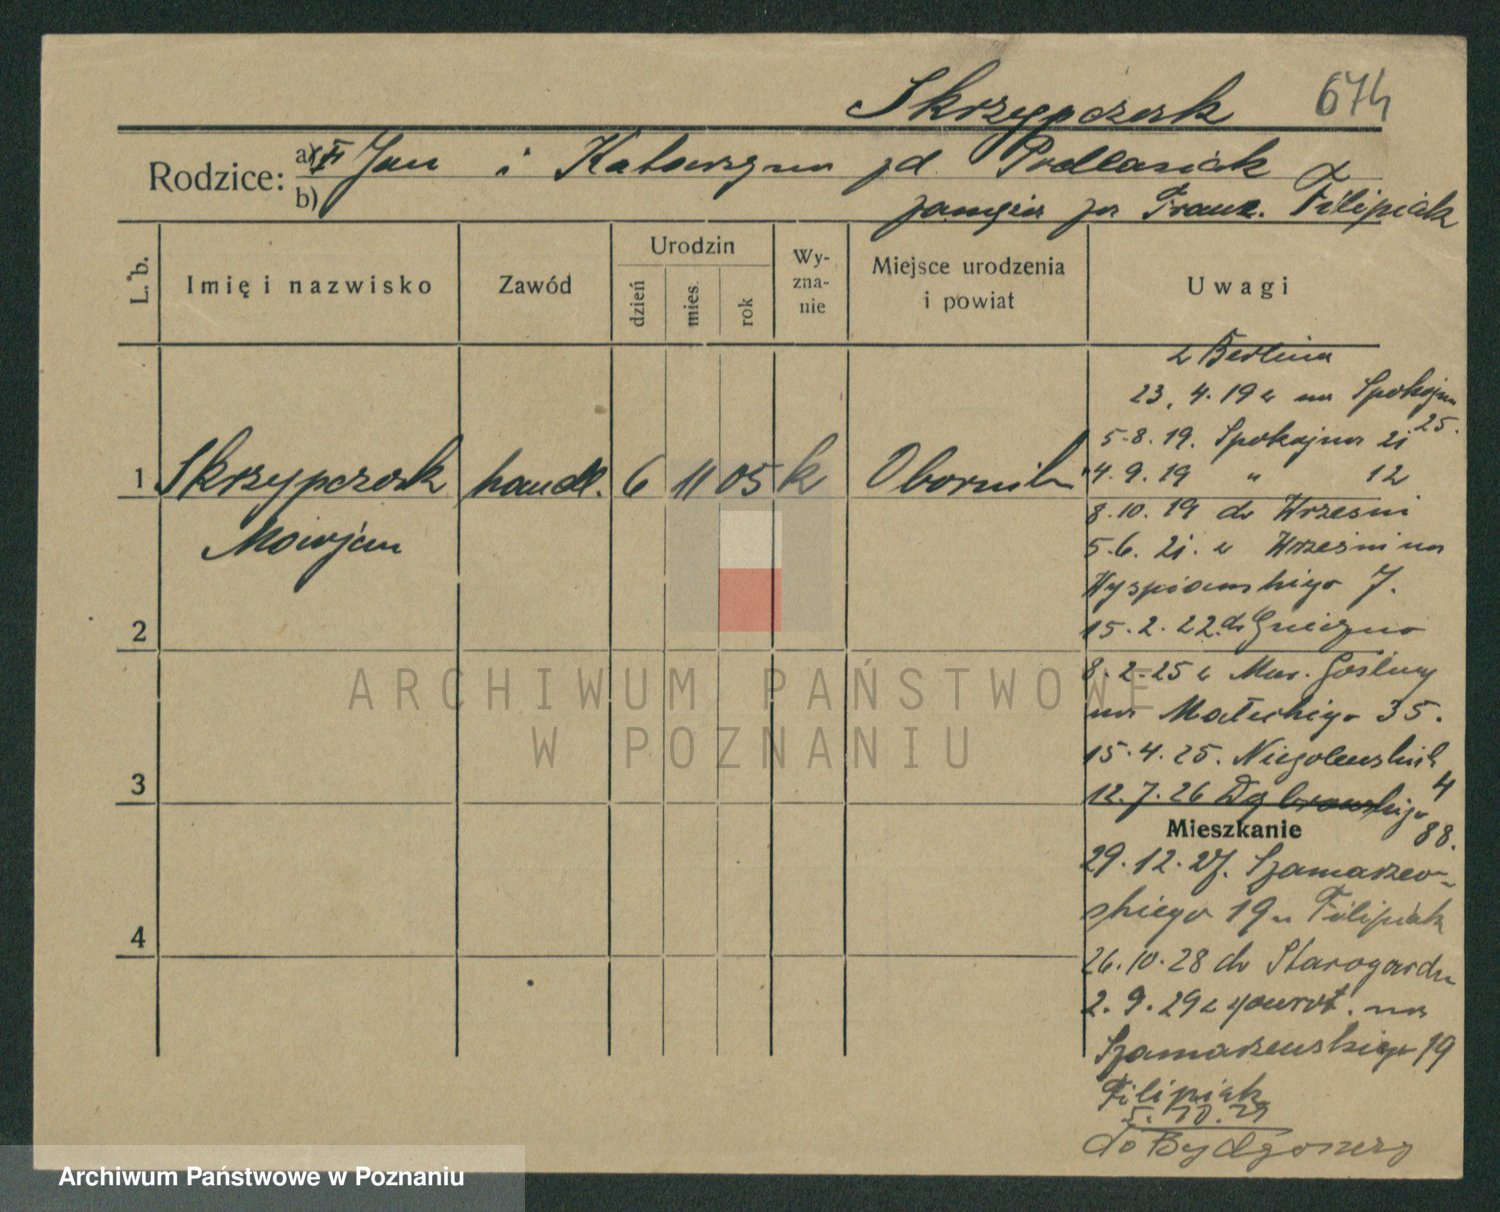 Skrzypczak 674
Rodzice: a) Jan i Katarzyna zd Podlasiak
b) zamęzna za Franc. Filipiak
L. b.
Imię i nazwisko
Zawód
Urodzin
dzień
mies.
rok
Wy-
zna-
nie
Miejsce urodzenia
i powiat
Uwagi
z Berlina
23. 4. 19 r na Spokojna
25.
5.8.19. Spokojna 21
1 Skrzypczak handl. 6 11 05 k Oborniki
Marjan
4.9.19 " 12
8.10.19 do Wrześni
5.6.21. z Wrześni na
Wyspiańskiego 7.
2
15.2.22. do Gniezno
8.2-25 z Mur. Gośliny
na Małeckiego 35.
15.4.25. Niegolewskich
4
3
12.7.26 Dąbrowskiego
88.
Mieszkanie
29.12.27. Szamarzew-
skiego 19 u Filipiak
4
26.10.28 do Starogardu
2.9.29 z powrot. na
Szamarzewskiego 19
Filipiak
5.10.29
do Bydgoszczy
ARCHIWUM PAŃSTWOWE
W POZNANIU
Archiwum Państwowe w Poznaniu